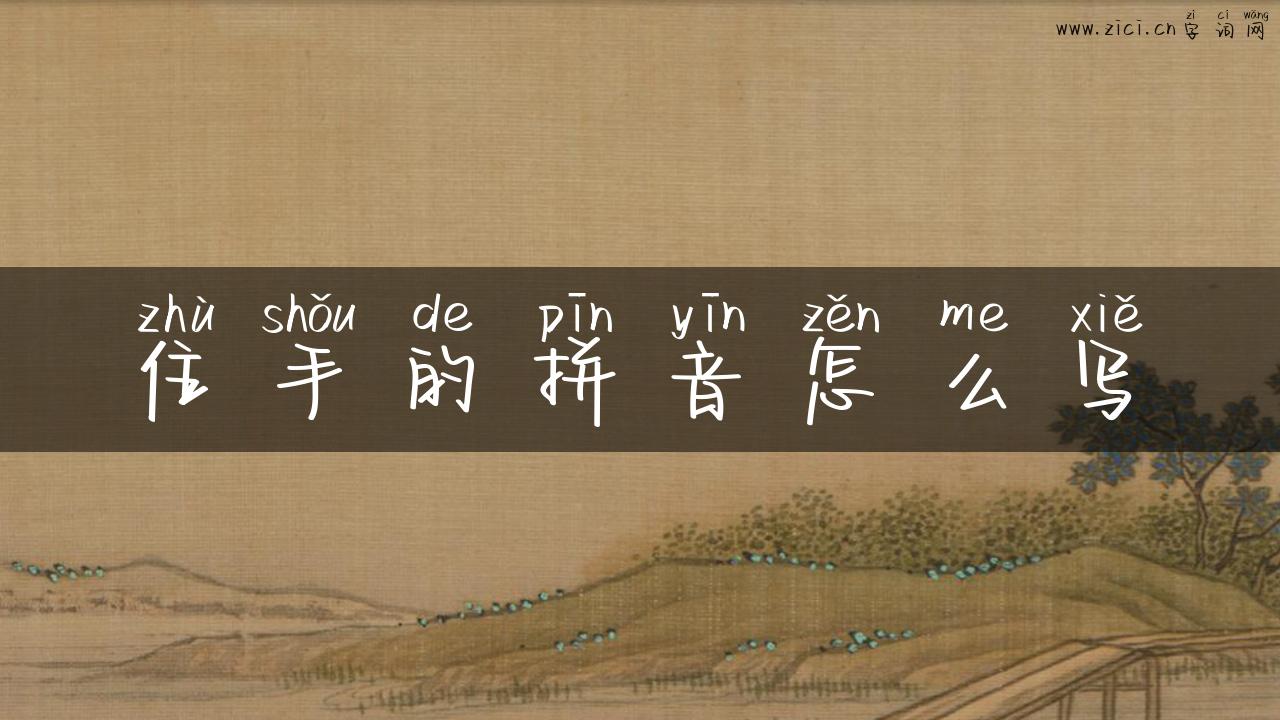 zì cí wǎng
www.zici.cn字词网
zhù shǒu de pīn yīn zěn me xiě
住手的拼音怎么写